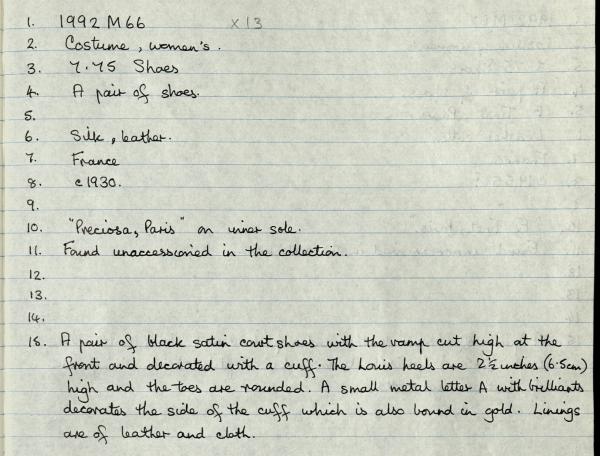 1. 1992 M66 x13
2. Costume, women's.
3. 7.75 Shoes
4. A pair of shoes.
5.
6. Silk, leather.
7. France
8. c1930.
9.
10. "Preciosa, Paris" on inner sole.
11. Found unaccessioned in the collection.
12.
13.
14.
15. A pair of black satin court shoes with the vamp cut high at the
front and decorated with a cuff. The Louis heels are 2½ inches (6.5cm)
high and the toes are rounded. A small metal letter A with brilliants
decorates the side of the cuff which is also bound in gold. Linings
are of leather and cloth.